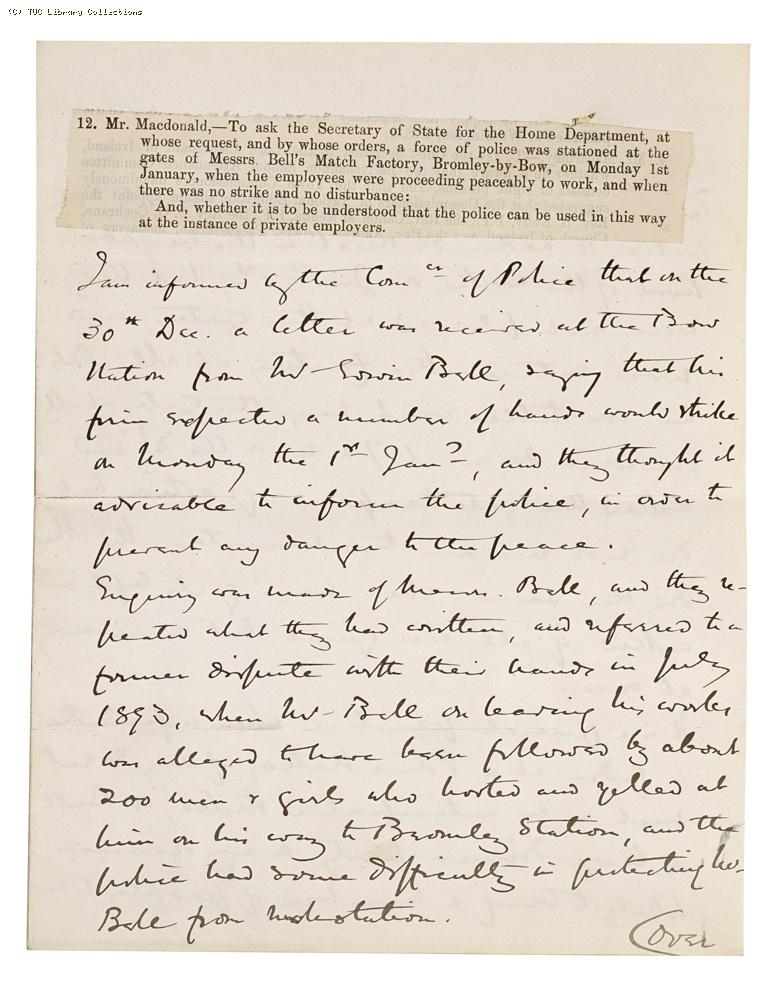 (C) TUC Library Collections
12. Mr. Macdonald,—To ask the Secretary of State for the Home Department, at
whose request, and by whose orders, a force of police was stationed at the
gates of Messrs. Bell's Match Factory, Bromley-by-Bow, on Monday 1st
January, when the employees were proceeding peaceably to work, and when
there was no strike and no disturbance:
And, whether it is to be understood that the police can be used in this way
at the instance of private employers.
I am informed by the Comer of Police that on the
30th Dec. a letter was received at the Bow
Station from Mr Edwin Bell, saying that his
firm expected a number of hands would strike
on Monday the 1st Jany, and they thought it
advisable to inform the police, in order to
prevent any danger to the peace.
Enquiry was made of Messrs. Bell, and they re-
peated what they had written, and referred to a
former dispute with their hands in July
1893, when Mr Bell on leaving his works
was alleged to have been followed by about
200 men & girls who hooted and yelled at
him on his way to Bromley Station, and the
police had some difficulty in protecting Mr
Bell from molestation.
(Over